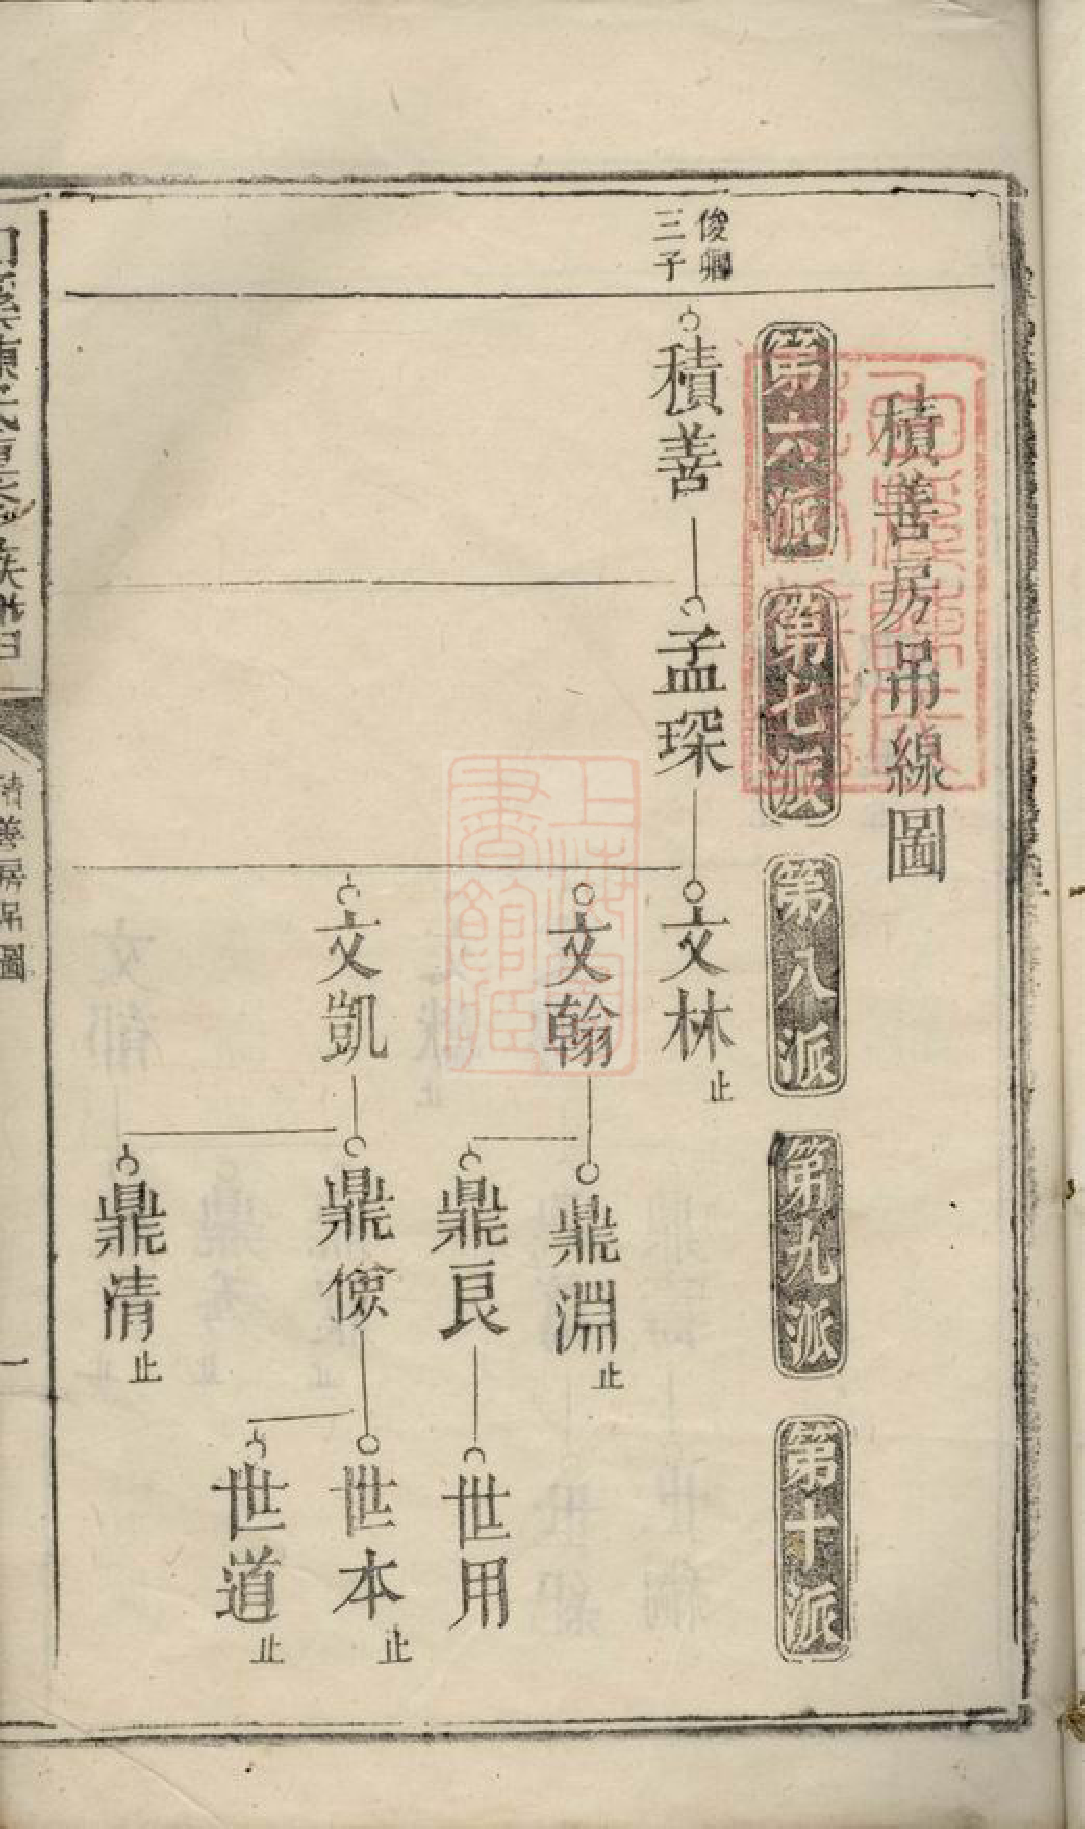 積善房吊線圖
第六派
第七派
第八派
第九派
第十派
俊卿
三子
積善
孟琛
文林
止
文翰
文凱
鼎淵
止
鼎良
鼎儉
鼎清
止
世用
世本
止
世道
止
上海圖
書館臧
族譜
積善房吊圖
一